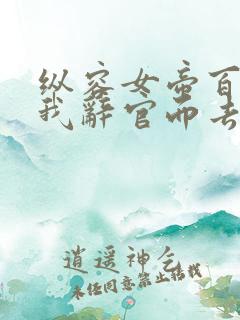 纵容女帝百
我辞官而去
逍遥神乞
未经同意禁止转载